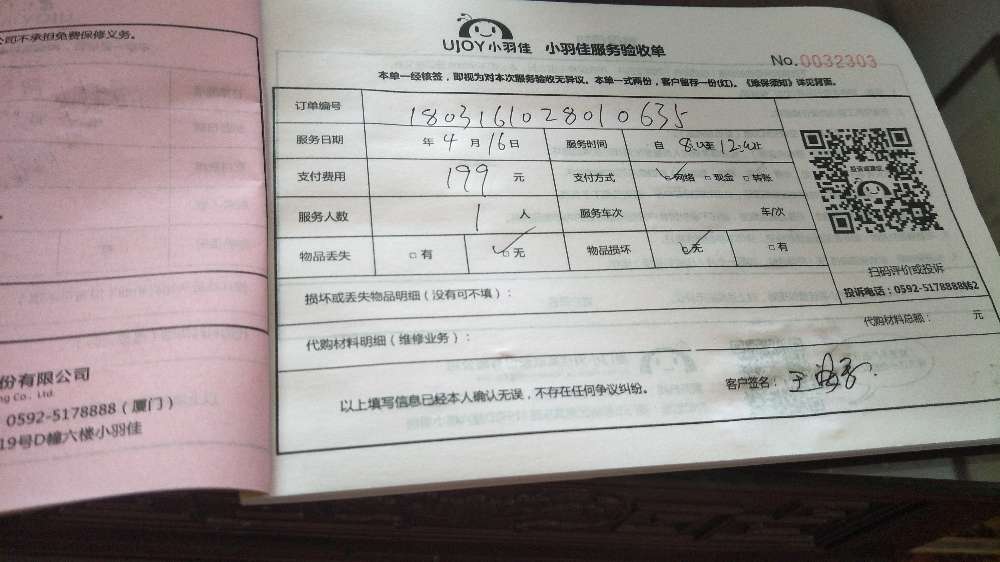 公司不承担免费保修义务。
份有限公司
ing Co., Ltd.
0592-5178888（厦门）
19号D幢六楼小羽佳
UJOY小羽佳 小羽佳服务验收单
No.0032303
本单一经核签，即视为对本次服务验收无异议。本单一式两份，客户留存一份(红)。《维保须知》详见背面。
订单编号 1803161028010635
服务日期 年 4 月 16 日 服务时间 自 至 止
支付费用 199 元 支付方式 □网络 □现金 □转账
服务人数 1 人 服务车次 车/次
物品丢失 □有 □无 物品损坏 □无 □有
损坏或丢失物品明细（没有可不填）：
代购材料明细（维修业务）： 代购材料总额： 元
以上填写信息已经本人确认无误，不存在任何争议纠纷。 客户签名：
投诉或建议
扫码评价或投诉
投诉电话：0592-5178888转2